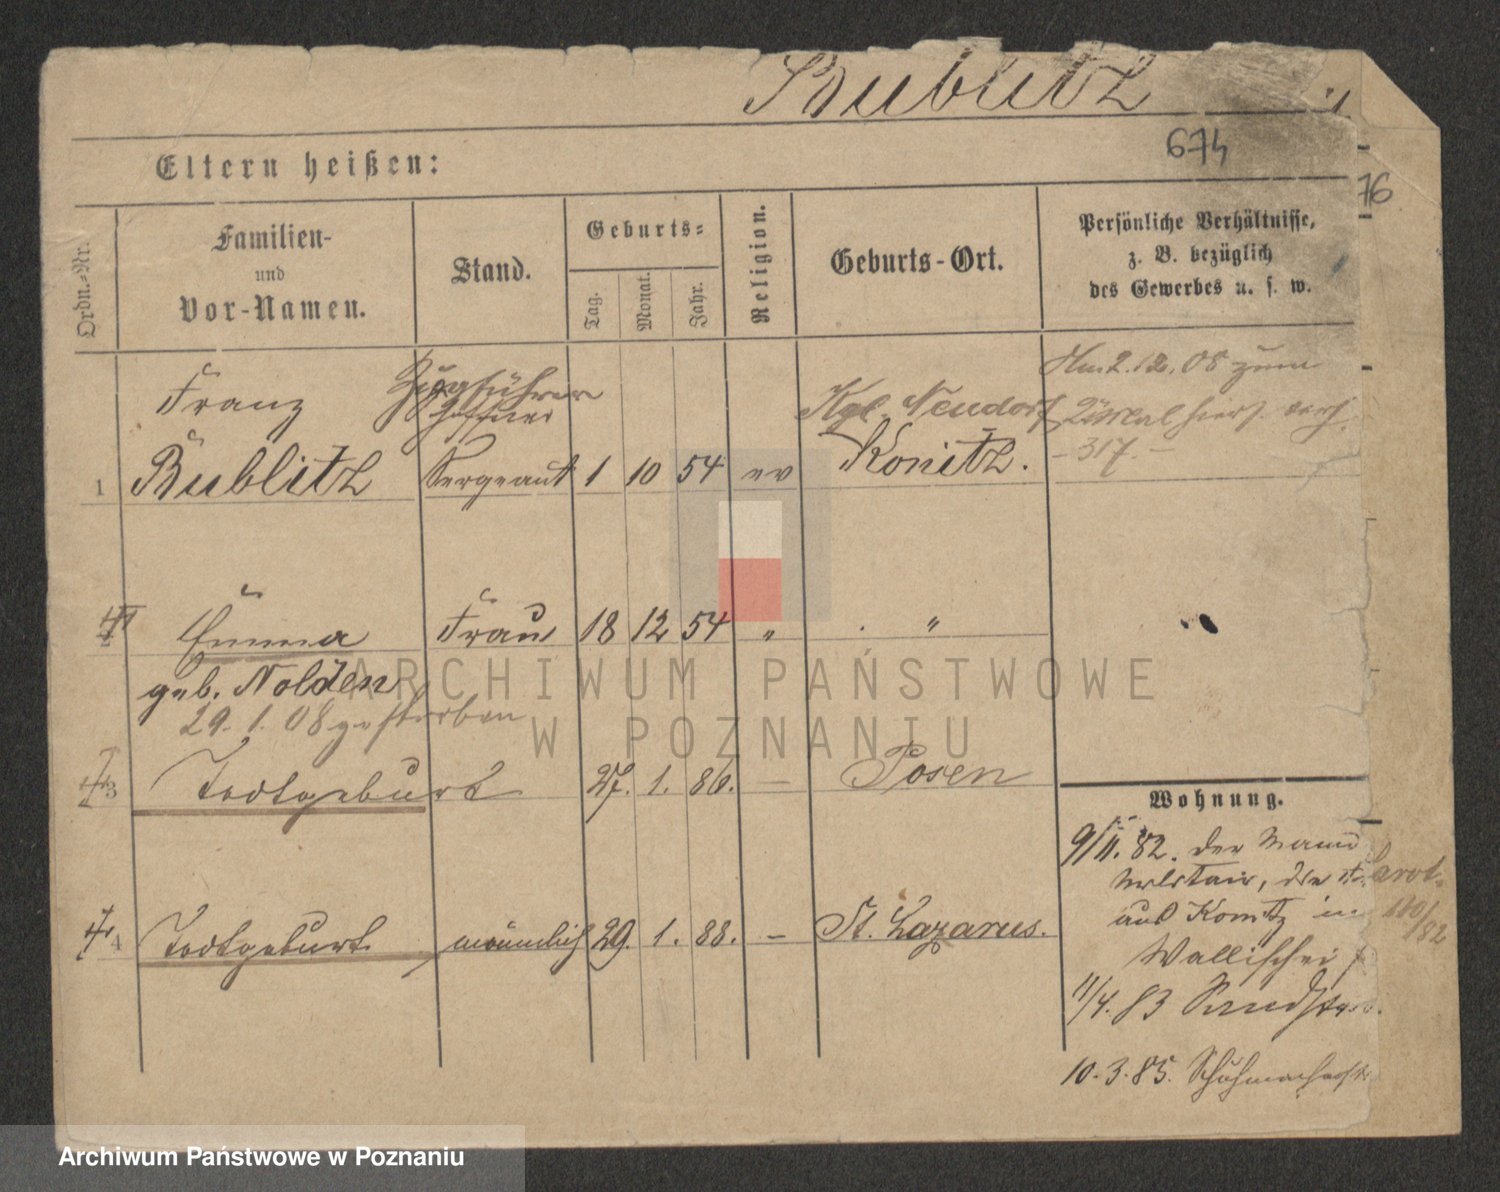 Bublitz
674
Eltern heißen:
76
Ordn.-Nr.
Familien-
und
Vor-Namen.
Stand.
Geburts-
Tag.
Monat.
Jahr.
Religion.
Geburts-Ort.
Persönliche Verhältnisse,
z. B. bezüglich
des Gewerbes u. s. w.
Franz Zugführer Kgl. Neudorf 2.12.08 zum
Schaffner
317.
1 Bublitz Sergeant 1 10 54 ev Konitz.
Emma Frau 18 12 54 " "
geb. Nolden
29.1.08 gestorben
3 Todtgeburt 27. 1. 86. — Posen
Wohnung.
9/11. 82. der Mann
die
aus Konitz in 110/82
Wallischei
4 Todtgeburt männlich 29. 1. 88. — St. Lazarus.
11/4. 83
10.3.85. Schuhmacherstr
ARCHIWUM PAŃSTWOWE
W POZNANIU
Archiwum Państwowe w Poznaniu